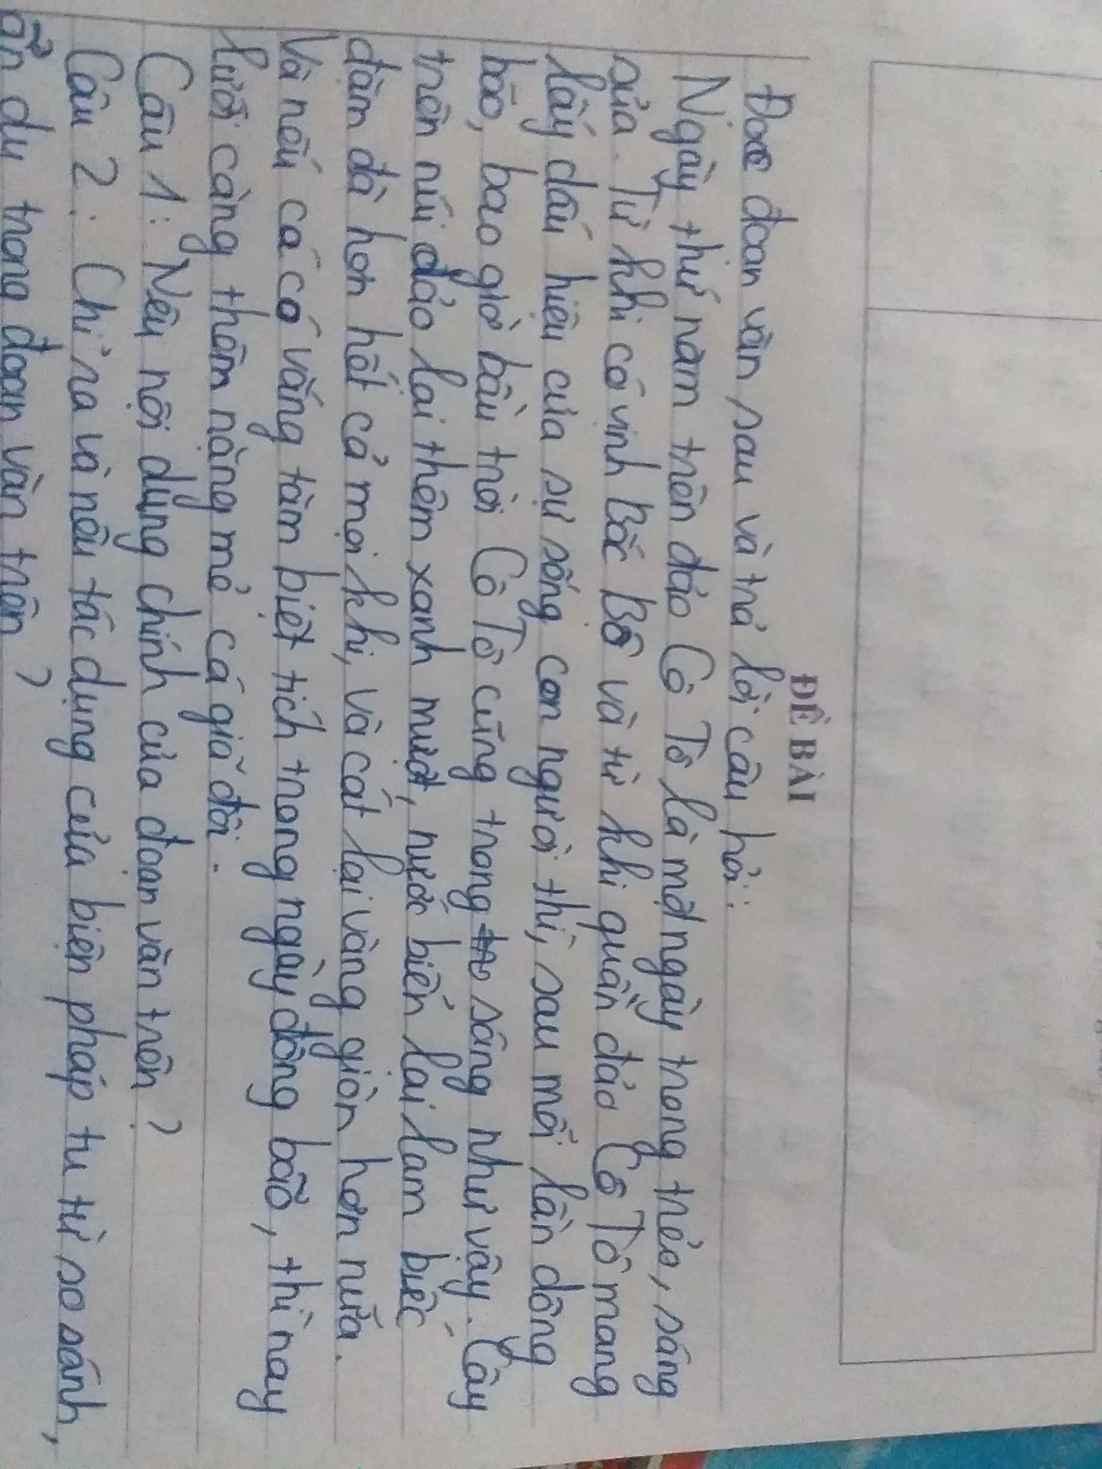 ĐỀ BÀI
Đọc đoạn văn sau và trả lời câu hỏi:
Ngày thứ năm trên đảo Cô Tô là một ngày trong trẻo, sáng
sủa. Từ khi có vịnh Bắc Bộ và từ khi quần đảo Cô Tô mang
lấy dấu hiệu của sự sống con người thì, sau mỗi lần dông
bão, bao giờ bầu trời Cô Tô cũng trong sáng như vậy. Cây
trên núi đảo lại thêm xanh mượt, nước biển lại lam biếc
đặm đà hơn hết cả mọi khi, và cát lại vàng giòn hơn nữa.
Và nếu cá có vắng tăm biệt tích trong ngày động bão, thì nay
lưới càng thêm nặng mẻ cá giã đôi.
Câu 1: Nêu nội dung chính của đoạn văn trên?
Câu 2: Chỉ ra và nêu tác dụng của biện pháp tu từ so sánh,
ẩn dụ trong đoạn văn trên?